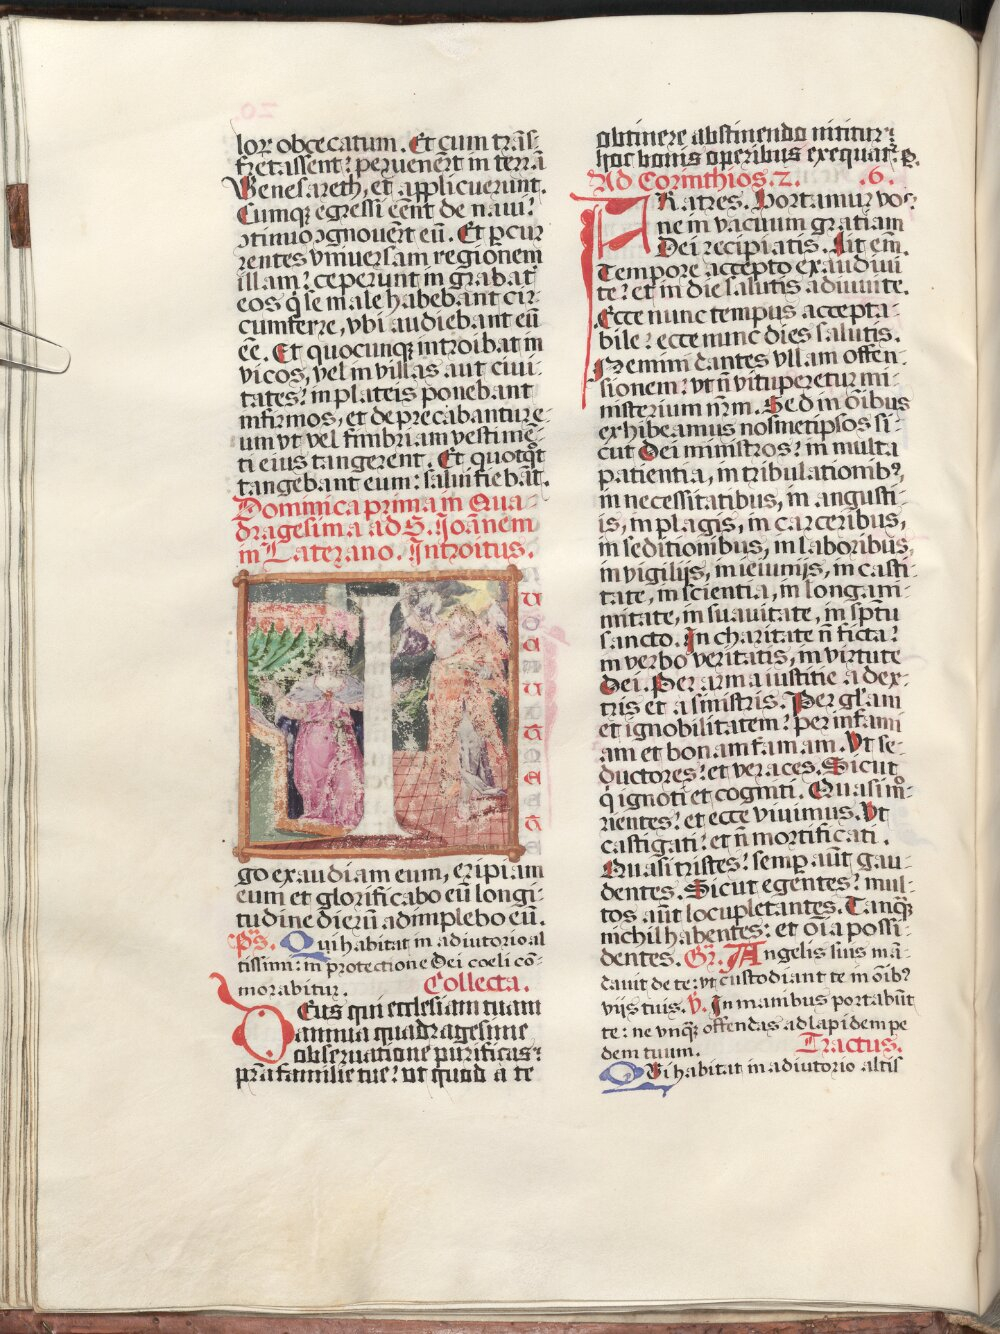 lor obcecatum. Et cum trāſ-
fretaſſent: peruenert̄ in terrā
Geneſareth, et applicuerunt.
Cumqꝫ egreſſi eēnt de naui:
ↄtinuo ↄgnouert̄ eū. Et ꝑcur
rentes vniuerſam regionem
illam: ceperunt in grabat̄
eos q̇ ſe male habebant cir-
cumferre, vbi audiebant eū
eē. Et quocunqꝫ introibat in
vicos, vel in villas aut ciui-
tates: in plateis ponebant
infirmos, et deprecabantur e-
um vt vel fimbriam veſtimē-
ti eius tangerent. Et quotqͦt
tangebant eum: ſalui fiebāt.
Dominica prima in Qua
dragesima ad S. Ioānem
in Laterano. Introitus.
I
go exaudiam eum, eripiam
eum et glorificabo eū longi-
tudine dierū adimplebo eū.
Ps. Qui habitat in adiutorio al
tiſſimi: in protectione Dei coeli cō-
morabitur. Collecta.
Deus qui eccleſiam tuam
annua quadrageſime
obſeruatione purificas:
p̄ſta familie tue: ut quod a te
obtinere abſtinendo nititur:
hoc bonis operibus exequat̄. P.
Ad Corinthios. 2. .6.
FRatres. Hortamur vos:
ne in vacuum gratiam
Dei recipiatis. Ait em̄.
Tempore accepto exaudiui
te: et in die ſalutis adiuui te.
Ecce nunc tempus accepta-
bile: ecce nunc dies ſalutis.
Nemini dantes vllam offen-
sionem: vt n̄ vituperetur mi-
niſterium nr̄m. Sed in oībus
exhibeamus noſmetipſos ſi-
cut Dei miniſtros: in multa
patientia, in tribulationibꝫ,
in neceſſitatibus, in anguſti-
is, in plagis, in carceribus,
in ſeditionibus, in laboribus,
in vigilijs, in ieiunijs, in caſti-
tate, in ſcientia, in longani-
mitate, in ſuauitate, in ſpt̄u
ſancto. In charitate n̄ ficta:
in verbo veritatis, in virtute
Dei. Per arma iuſtitie a dex-
tris et a ſiniſtris. Per gl̄am
et ignobilitatem: per infami
am et bonam famam. Vt ſe-
ductores: et veraces. Sicut
q̇ ignoti et cogniti. Quaſi mō-
rientes: et ecce viuimus. Vt
caſtigati: et n̄ mortificati.
Quaſi triſtes: semꝑ aūt gau-
dentes. Sicut egentes: mul-
tos aūt locupletantes. Tanqꝫ
nichil habentes: et oīa poſſi-
dentes. Gr. Angelis suis mā-
dauit de te: vt cuſtodiant te in oībꝫ
viis tuis. ℣. In manibus portabūt
te: ne vnqꝫ offendas ad lapidem pe
dem tuum. Tractus.
QVi habitat in adiutorio altiſ